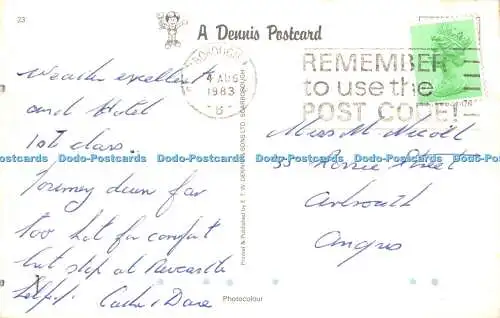 23
A Dennis Postcard
SCARBOROUGH
AUG
1983
B
REMEMBER
to use the
POST CODE!
Weather excellent
and Hotel
1st class.
Journey down far
too hot for comfort
but stop at Newcastle
helped.
Miss M. Nicoll
33 Rossie Street
Arbroath
Angus
Printed & Published by E.T.W. DENNIS & SONS LTD. SCARBOROUGH
Photocolour
Dodo-Postcards Dodo-Postcards Dodo-Postcards Dodo-Postcards Dodo-Postcards